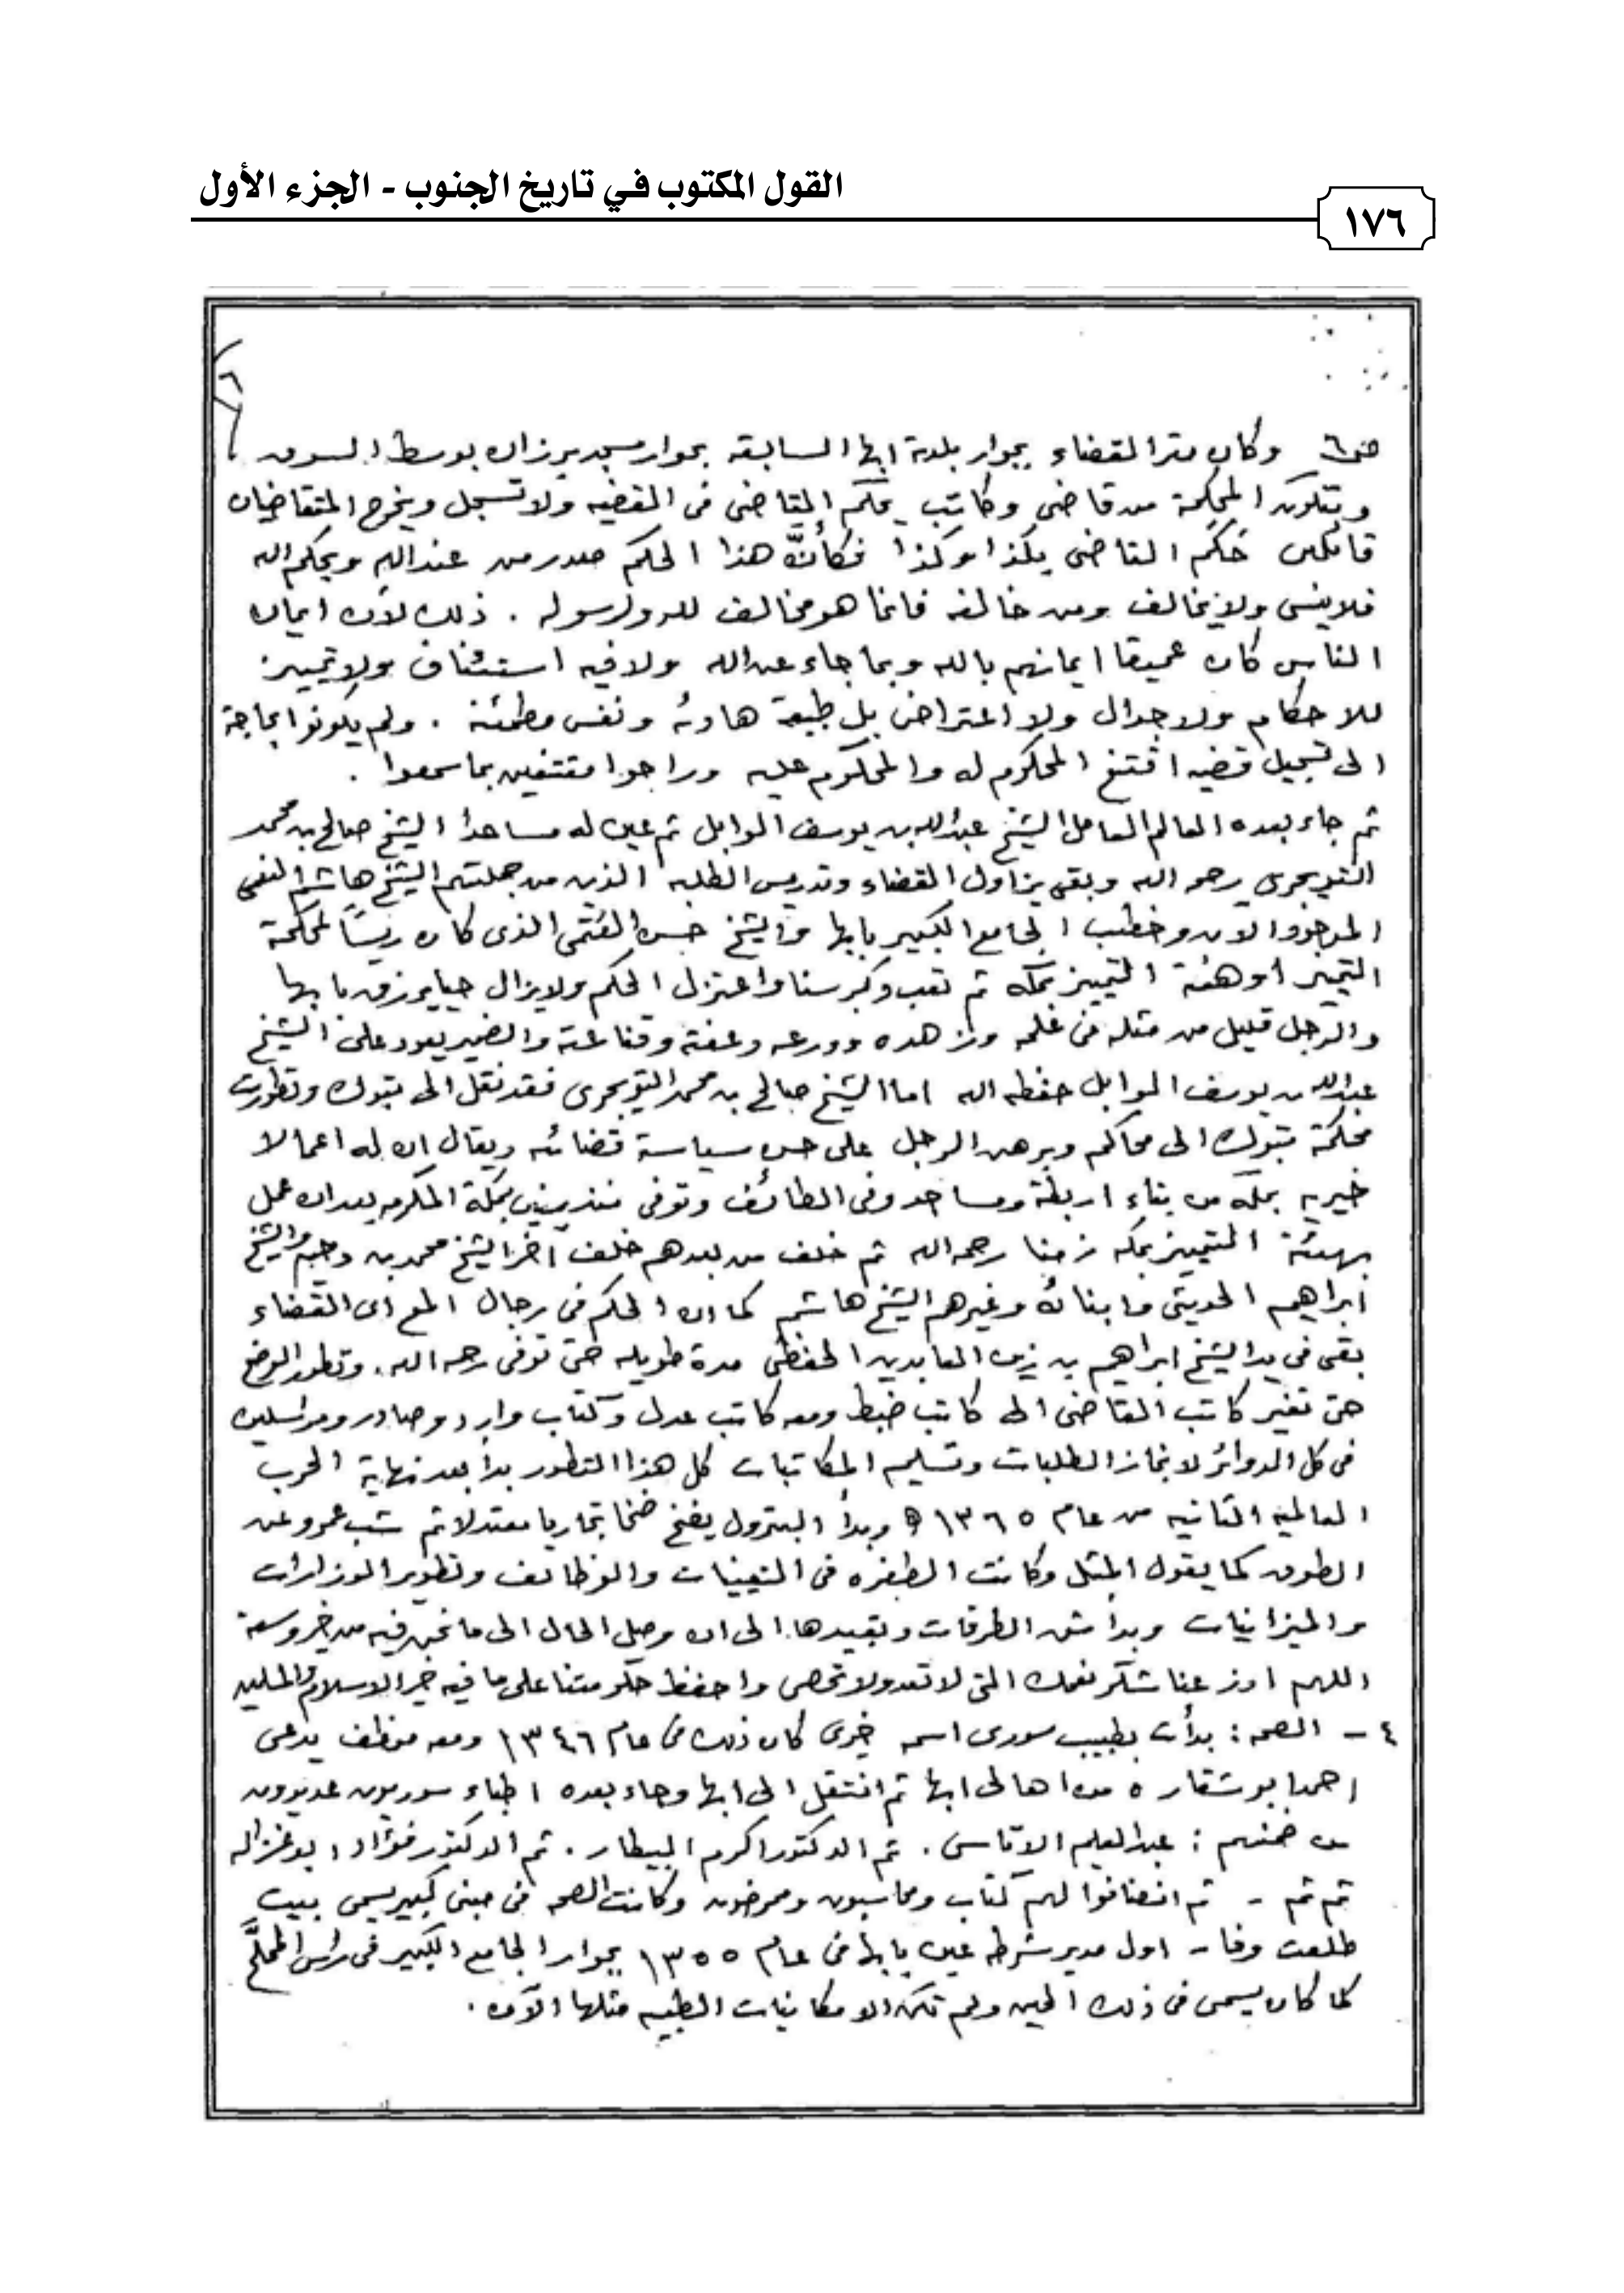 القول المكتوب في تاريخ الجنوب - الجزء الأول
١٧٦
٦
ص٦ وكان مقر القضاء بجوار بلدية ابها السابقه بجوار مسجد برزان بوسط السوق
وتتكون المحكمة من قاضي وكاتب يحكم القاضى فى القضيه ولا تسجل ويخرج المتقاضيان
قائلين حَكم القاضى بكذا وكذا فكأنَّ هذا الحكم صدر من عند الله وبحكم الله
فلا ينسى ولا يخالف ومن خالفه فانما هو مخالف لله ولرسوله . ذلك لأن ايمان
الناس كان عميقا ايمانهم بالله وبما جاء عن الله ولا فيه استئناف ولا تمييز
للاحكام ولا جدال ولا اعتراض بل طبيعة هادئه ونفس مطمئنه . ولم يكونوا بحاجة
الى تسجيل قضيه اقتنع المحكوم له والمحكوم عليه وراحوا مقتنعين بما سمعوا .
ثم جاء بعده العالم العامل الشيخ عبدالله بن يوسف الوابل ثم عين له مساعدا الشيخ صالح بن محمد
التويجرى رحمه الله وبقى يزاول القضاء وتدريس الطلبه الذين من جملتهم الشيخ هاشم النعمى
الموجود الان وخطيب الجامع الكبير بابها والشيخ حسن العتمى الذى كان رئيسًا لمحكمة
التمييز او هئية التمييز بمكه ثم تعب وكبر سنا واعتزل الحكم ولا يزال حيا يرزق بابها
والرجل قليل من مثله فى علمه وزهده وورعه وعفته وقناعته والضمير يعود على الشيخ
عبدالله بن يوسف الوابل حفظه الله اما الشيخ صالح بن محمد التويجرى فقد نقل الى تبوك وتطورت
محكمة تبوك الى محاكم وبرهن الرجل على حسن سياسة قضائه ويقال ان له اعمالا
خيريه بمكه من بناء اربطة ومساجد وفى الطائف وتوفى منذ سنين بمكة المكرمه بعد ان عمل
بهيئة التمييز بمكه زمنا رحمه الله ثم خلف من بعدهم خلف آخر الشيخ محمد بن والشيخ
ابراهيم الحديثى وابنائه وغيرهم الشيخ هاشم كما ان الحكم فى رجال المع اى القضاء
بقى فى يد الشيخ ابراهيم بن زين العابدين الحفظى مدة طويله حتى توفى رحمه الله . وتطور الوضع
حتى تغير كاتب القاضى الى كاتب ضبط ومعه كاتب عدل وكتاب وارد وصادر ومراسلين
فى كل الدوائر لانجاز الطلبات وتسليم المكاتبات كل هذا التطور بدأ بعد نهاية الحرب
العالميه الثانيه من عام ١٣٦٥ ﻫ وبدأ البترول يضخ ضخا تجاريا معتدلا ثم شب عمرو عن
الطوق كما يقول المثل وكانت الطفره فى التعيينات والوظائف وتطوير الوزارات
والميزانيات وبدأ شق الطرقات وتعبيدها الى ان وصل الحال الى ما نحن فيه من خير وسعة
اللهم اوزعنا شكر نعمك التى لا تعد ولا تحصى واحفظ حكومتنا على ما فيه خير الاسلام والمسلمين
٤ - الصحه : بدأت بطبيب سورى اسمه خيرى كان ذلك فى عام ١٣٤٦ ومعه موظف يدعى
احمد ابو شقاره من اهالى ابها ثم انتقل الى ابها وجاء بعده اطباء سوريون عديدون
من ضمنهم : عبدالعليم الاتاسى . ثم الدكتور اكرم البيطار . ثم الدكتور فؤاد ابو غزاله
ثم ثم - ثم انضافوا لهم كتاب ومحاسبون وممرضون وكانت الصحه فى مبنى كبير يسمى ببيت
طلعت وفا - اول مدير شرطه عين بابها فى عام ١٣٥٥ بجوار الجامع الكبير فى رأس المملَّح
كما كان يسمى فى ذلك الحين ولم تكن الامكانيات الطبيه مثلها الآن .